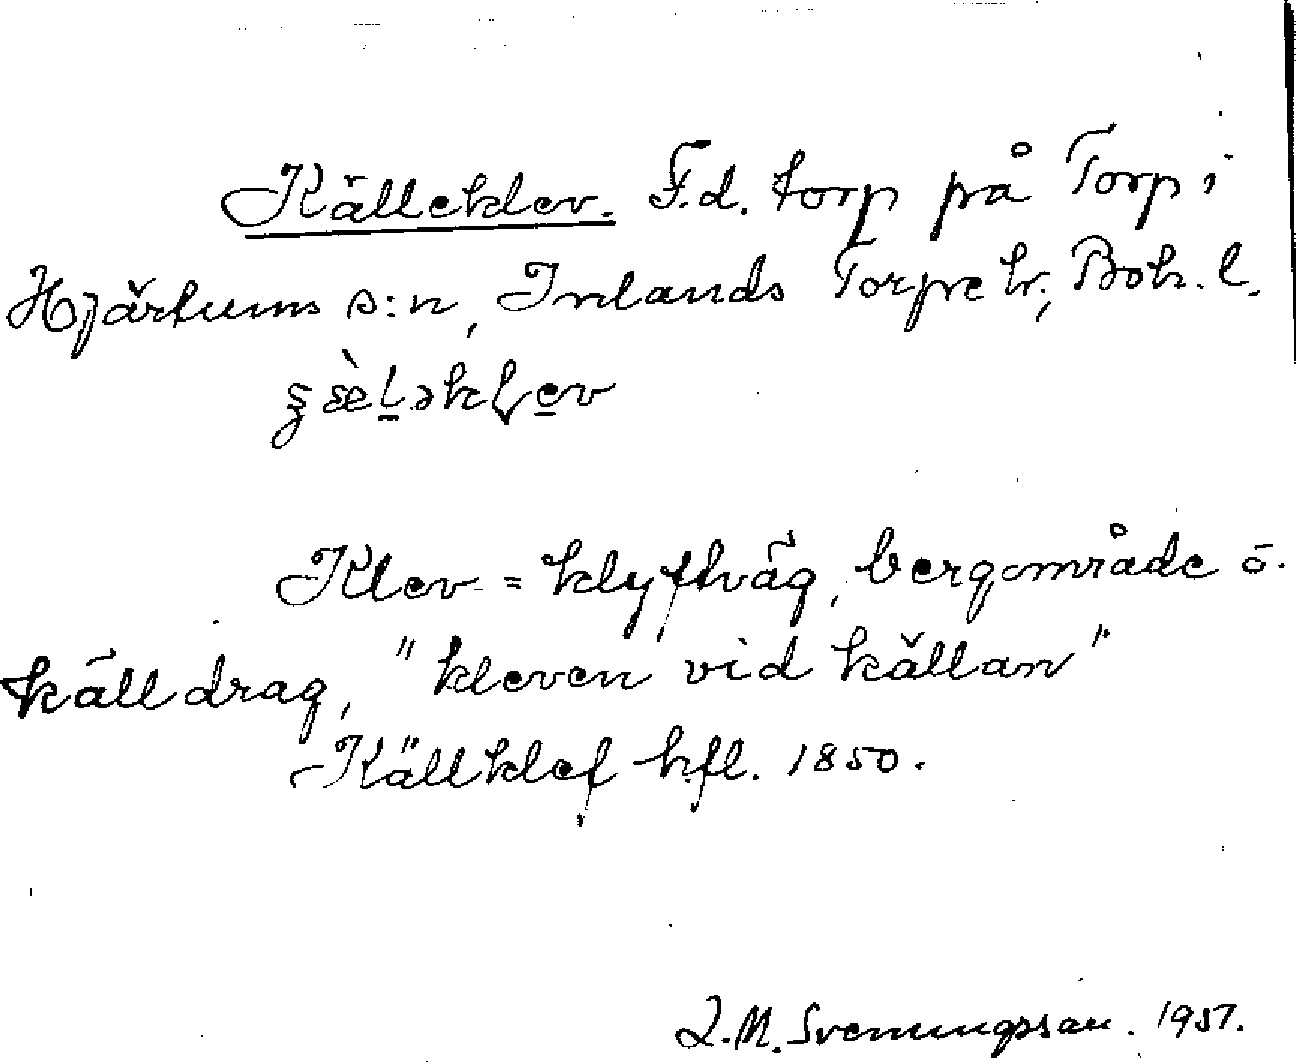 Källeklev. F.d. torp på Torp i
Hjärtums s:n, Inlands Torpe hr., Boh. l.
Klev = klyftväg, bergområde o.
källdrag, "kleven vid källan"
Källklef hfl. 1850.
L.M. Svenungsson. 1957.